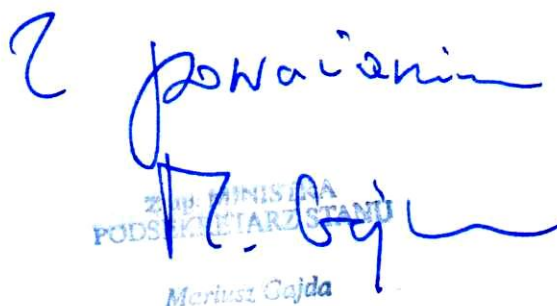 Z poważaniem
M. Gajda
Z up. MINISTRA
PODSEKRETARZ STANU
Mariusz Gajda